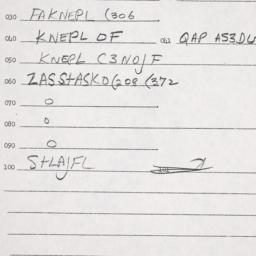 030 FAKNEPL (306
040 KNEPL OF 041 QAP AS3DU
050 KNEPL C3NOJF
060 ZASSTASKD(208 (372
070 0
080 0
090 0
100 STLAJFL